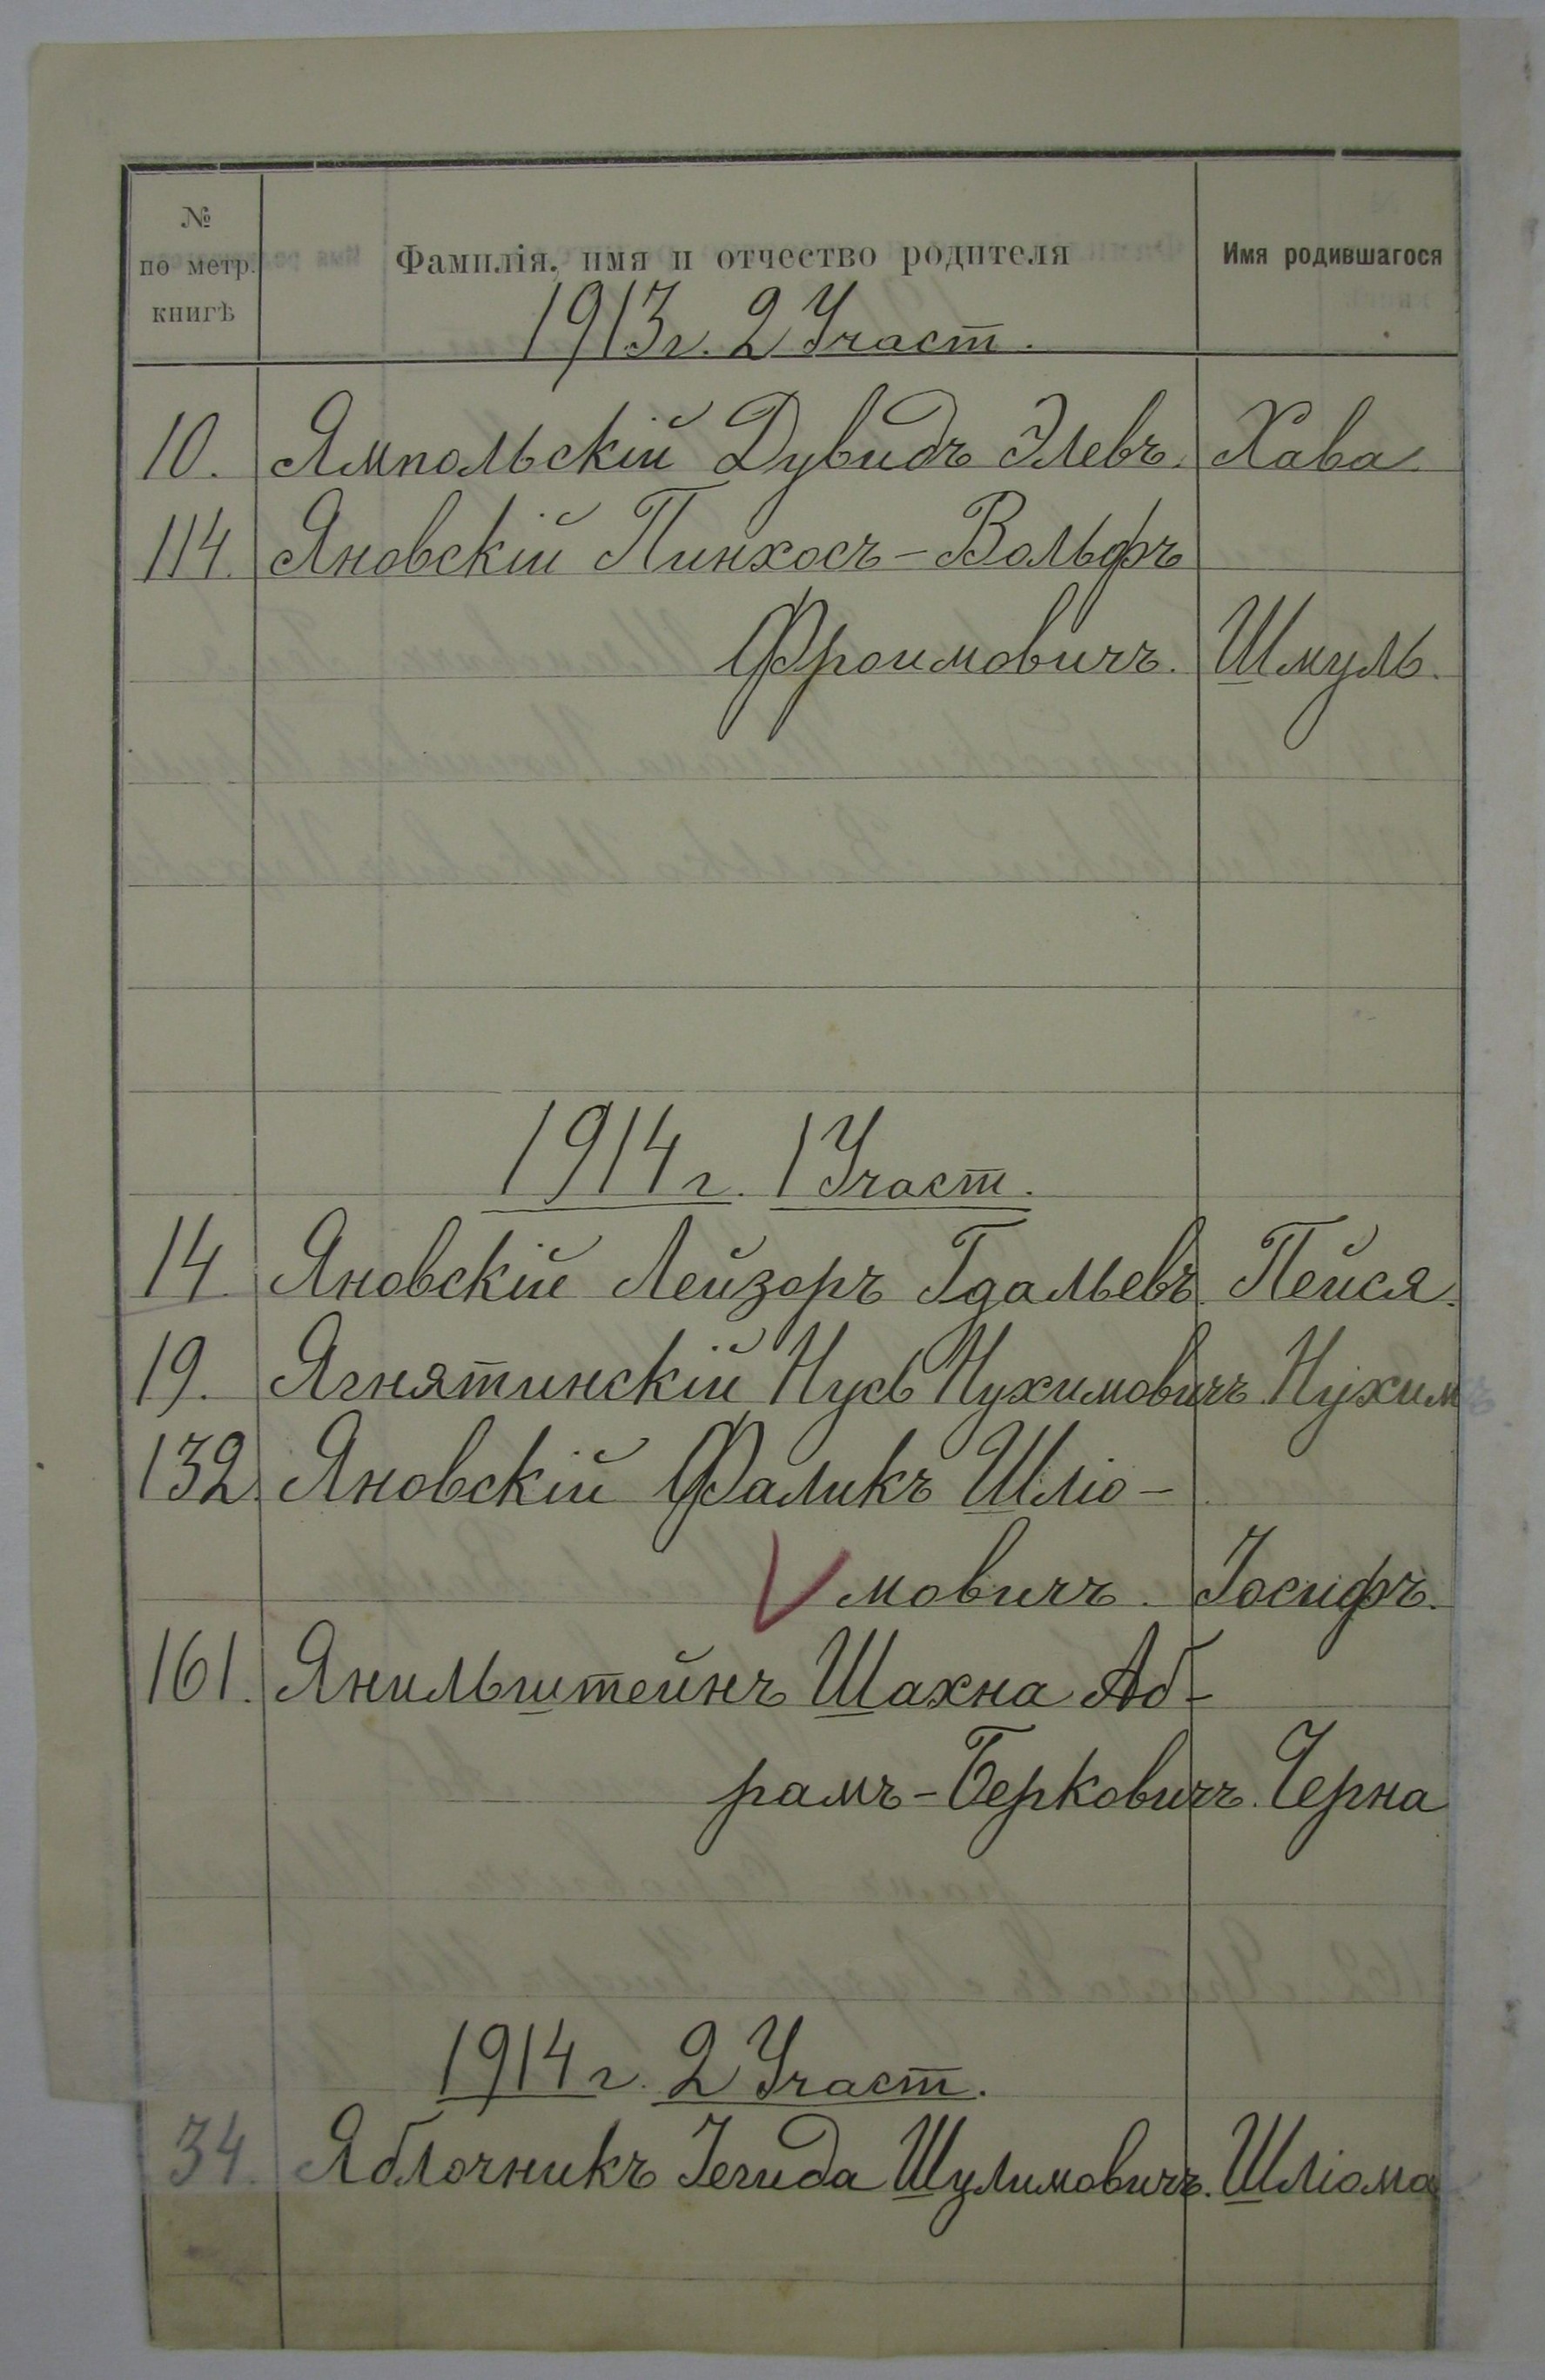 № по метр. книгѣ Фамилія, имя и отчество родителя Имя родившагося
1913 г. 2 Участ.
10. Ямпольскій Дувидъ Элевъ. Хава
114. Яновскій Пинхосъ-Вольфъ
Фроимовичъ. Шмуль.
1914 г. 1 Участ.
14 Яновскій Лейзоръ Гдальевъ. Пейся.
19. Ягнятинскій Нусь Нухимовичъ. Нухимъ
132. Яновскій Фаликъ Шліо-
мовичъ. Іосифъ.
161. Янильштейнъ Шахна Аб-
рамъ-Берковичъ. Черна
1914 г. 2 Участ.
34. Яблочникъ Іегида Шулимовичъ. Шліома